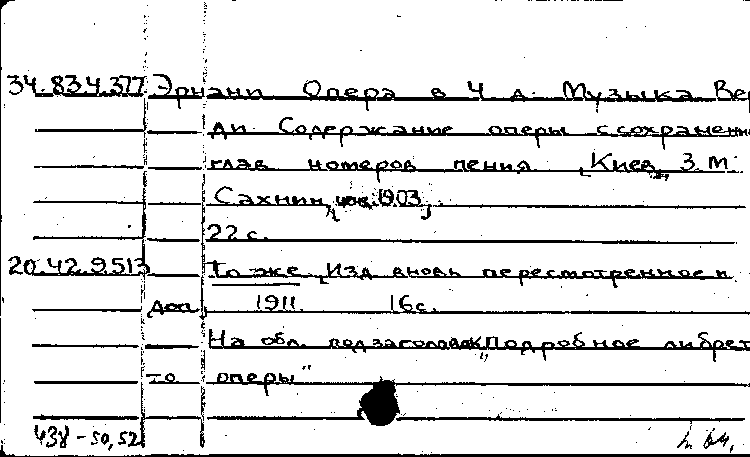 34.834.377 Эрнани Опера в 4 д. Музыка Вер
ди Содержание оперы с сохранени
глав номеров пения [Киев, З. М.
Сахнин, 1903]
22 с.
20.42.9.513 То же [Изд вновь пересмотренное и
доп] 1911. 16 с.
На обл. подзаголовок „Подробное либрет
то оперы"
438-50,52